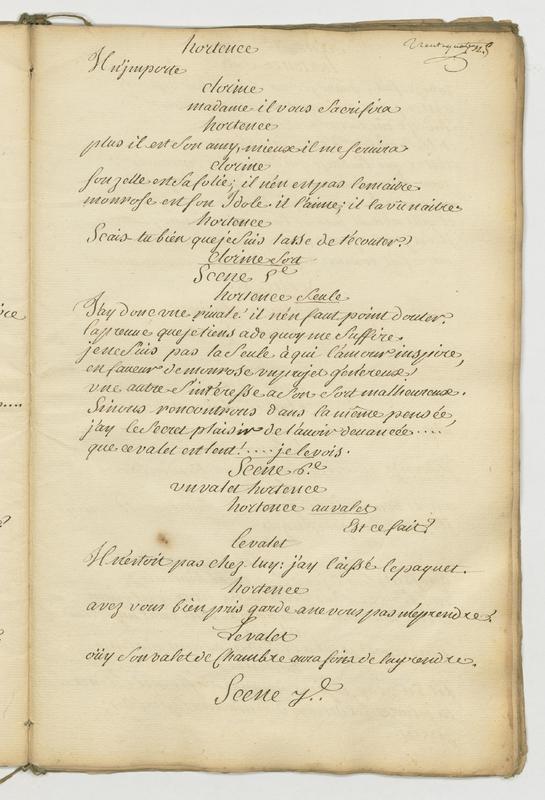 hortence
Il n'importe
clorine
madame il vous Sacrifira
hortence
plus il est Son amy, mieux il me Servira
clorine
fonzelle est Sa folie; il n'en est pas le maitre
monrose est Son Idole. il l'aime; il la vu naitre.
hortence
Scais tu bien que je Suis lasse de t'ecouter?
clorine Sort
Scene 5e
hortence Seule
J'ay donc une rivale! il n'en faut point douter.
la preuve que je tiens a de quoy me Suffire.
je ne Suis pas la Seule à qui l'amour inspire,
en faveur de monrose un projet généreux!
une autre S'intéresse a Son Sort malheureux.
Si nous rencontrons dans la même pensée,
j'ay le Secret plaisir de l'avoir devancée ....
que ce valet est lent! .... je le vois.
Scene 6.e
un valet hortence
hortence au valet
Est ce fait?
le valet
Il n'estoit pas chez luy: j'ay laissé le paquet.
hortence
avez vous bien pris garde a ne vous pas méprendre?
Le valet
oüy Son valet de Chambre aura soin de luy rendre.
Scene 7.e